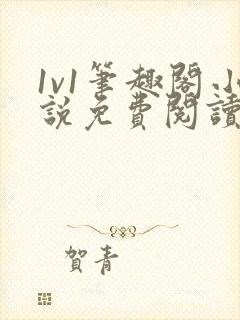 1v1筆趣閣.小
說免費閱讀
賀青